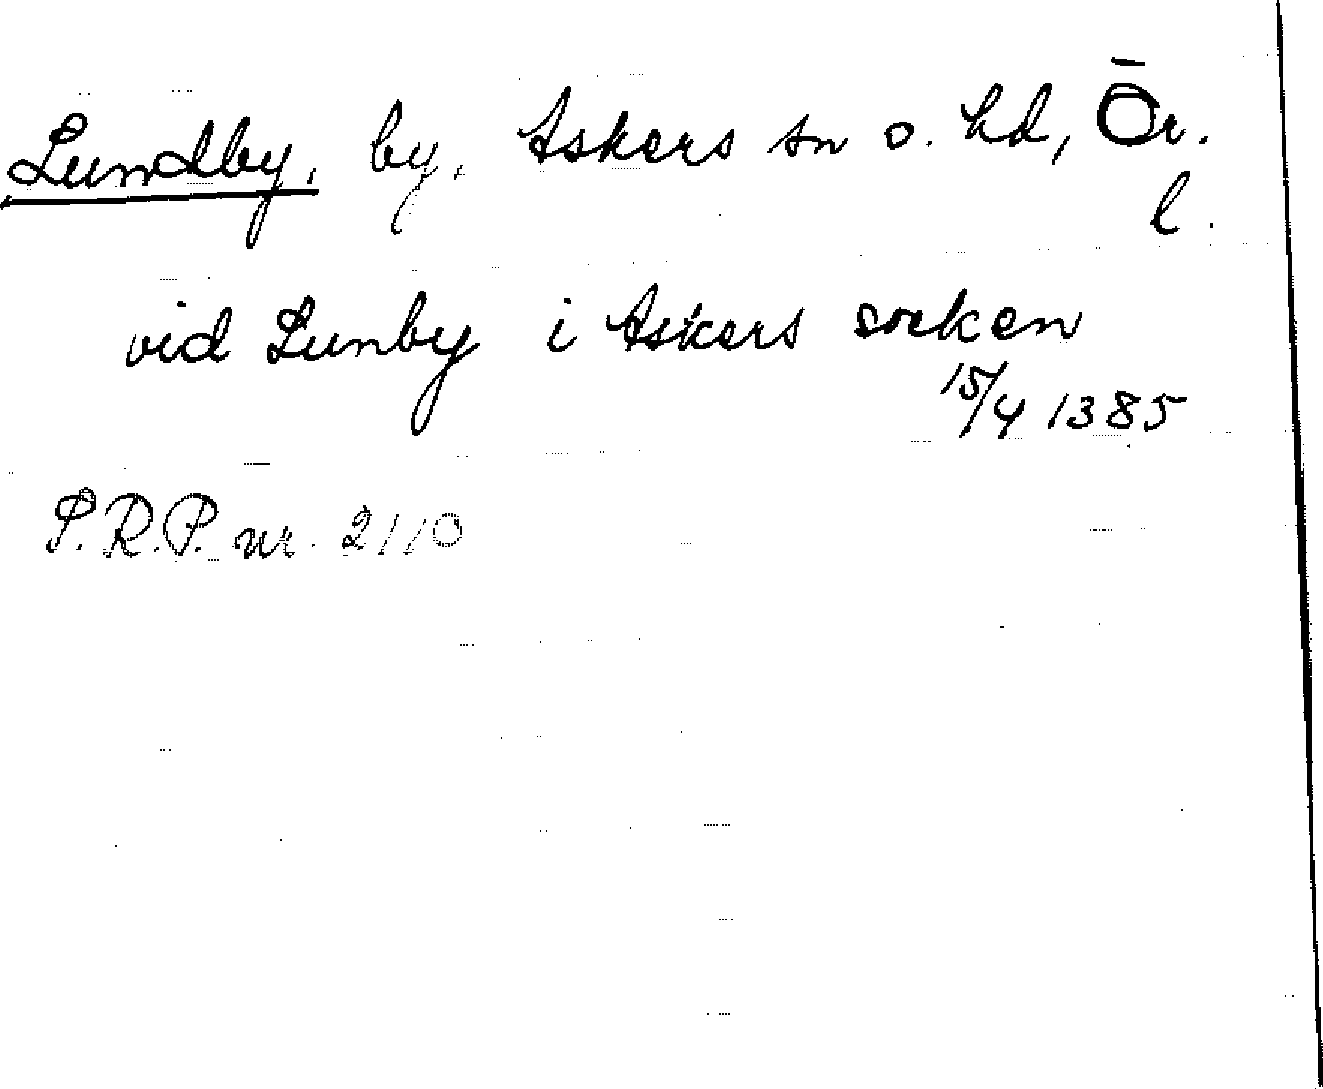 Lundby, by, Askers sn o. hd, Ör.
l.
vid Lunby i Askers socken
15/4 1385
S.R.P. nr. 2110